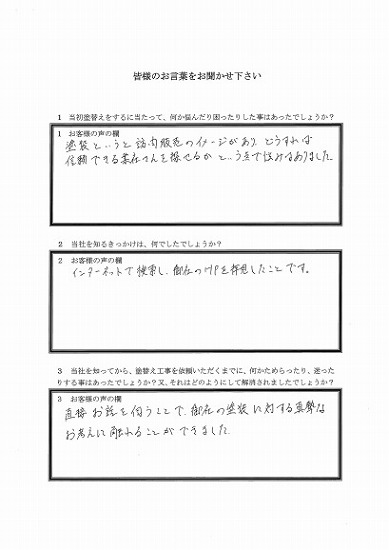 皆様のお言葉をお聞かせ下さい
1 当初塗替えをするに当たって、何か悩んだり困ったりした事はあったでしょうか？
1 お客様の声の欄
塗装というと訪問販売のイメージがあり、どうすれば
信頼できる業社さんを探せるか という点で悩みはありました。
2 当社を知るきっかけは、何でしたでしょうか？
2 お客様の声の欄
インターネットで検索し、御社のHPを拝見したことです。
3 当社を知ってから、塗替え工事を依頼いただくまでに、何かためらったり、迷った
りする事はあったでしょうか？又、それはどのようにして解消されましたでしょうか？
3 お客様の声の欄
直接お話を伺うことで、御社の塗装に対する真摯な
お考えに触れることができました。